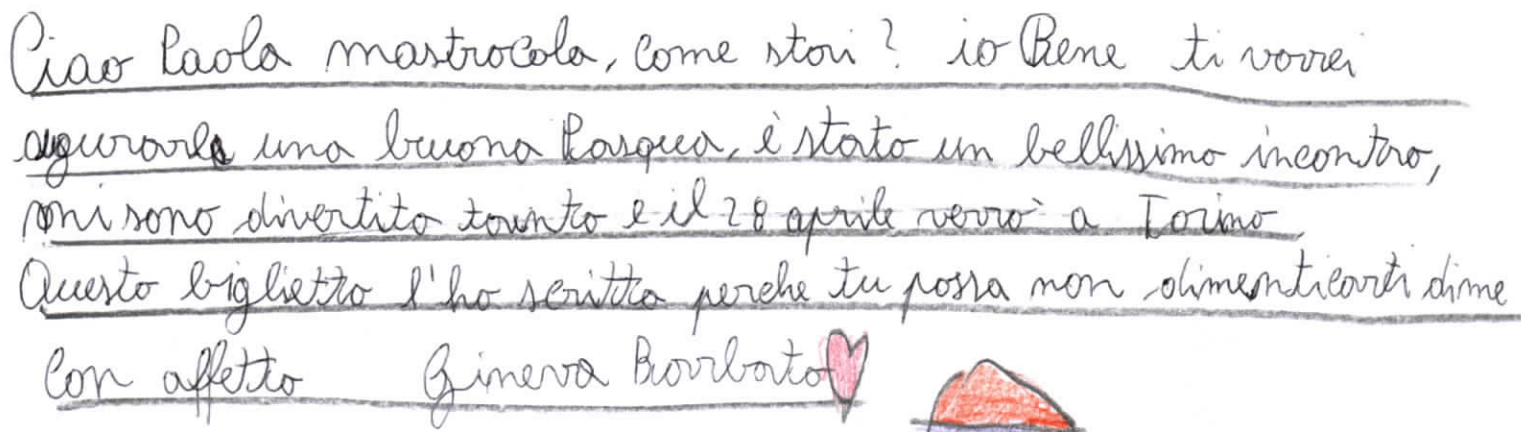 Ciao Paola mastrocola, come stai? io Bene ti vorrei
agurarle una buona Pasqua, è stato un bellissimo incontro,
mi sono divertito tanto e il 28 aprile verrò a Torino
Questo biglietto l'ho scritto perche tu possa non dimenticarti dime
Con affetto Ginevra Barbato